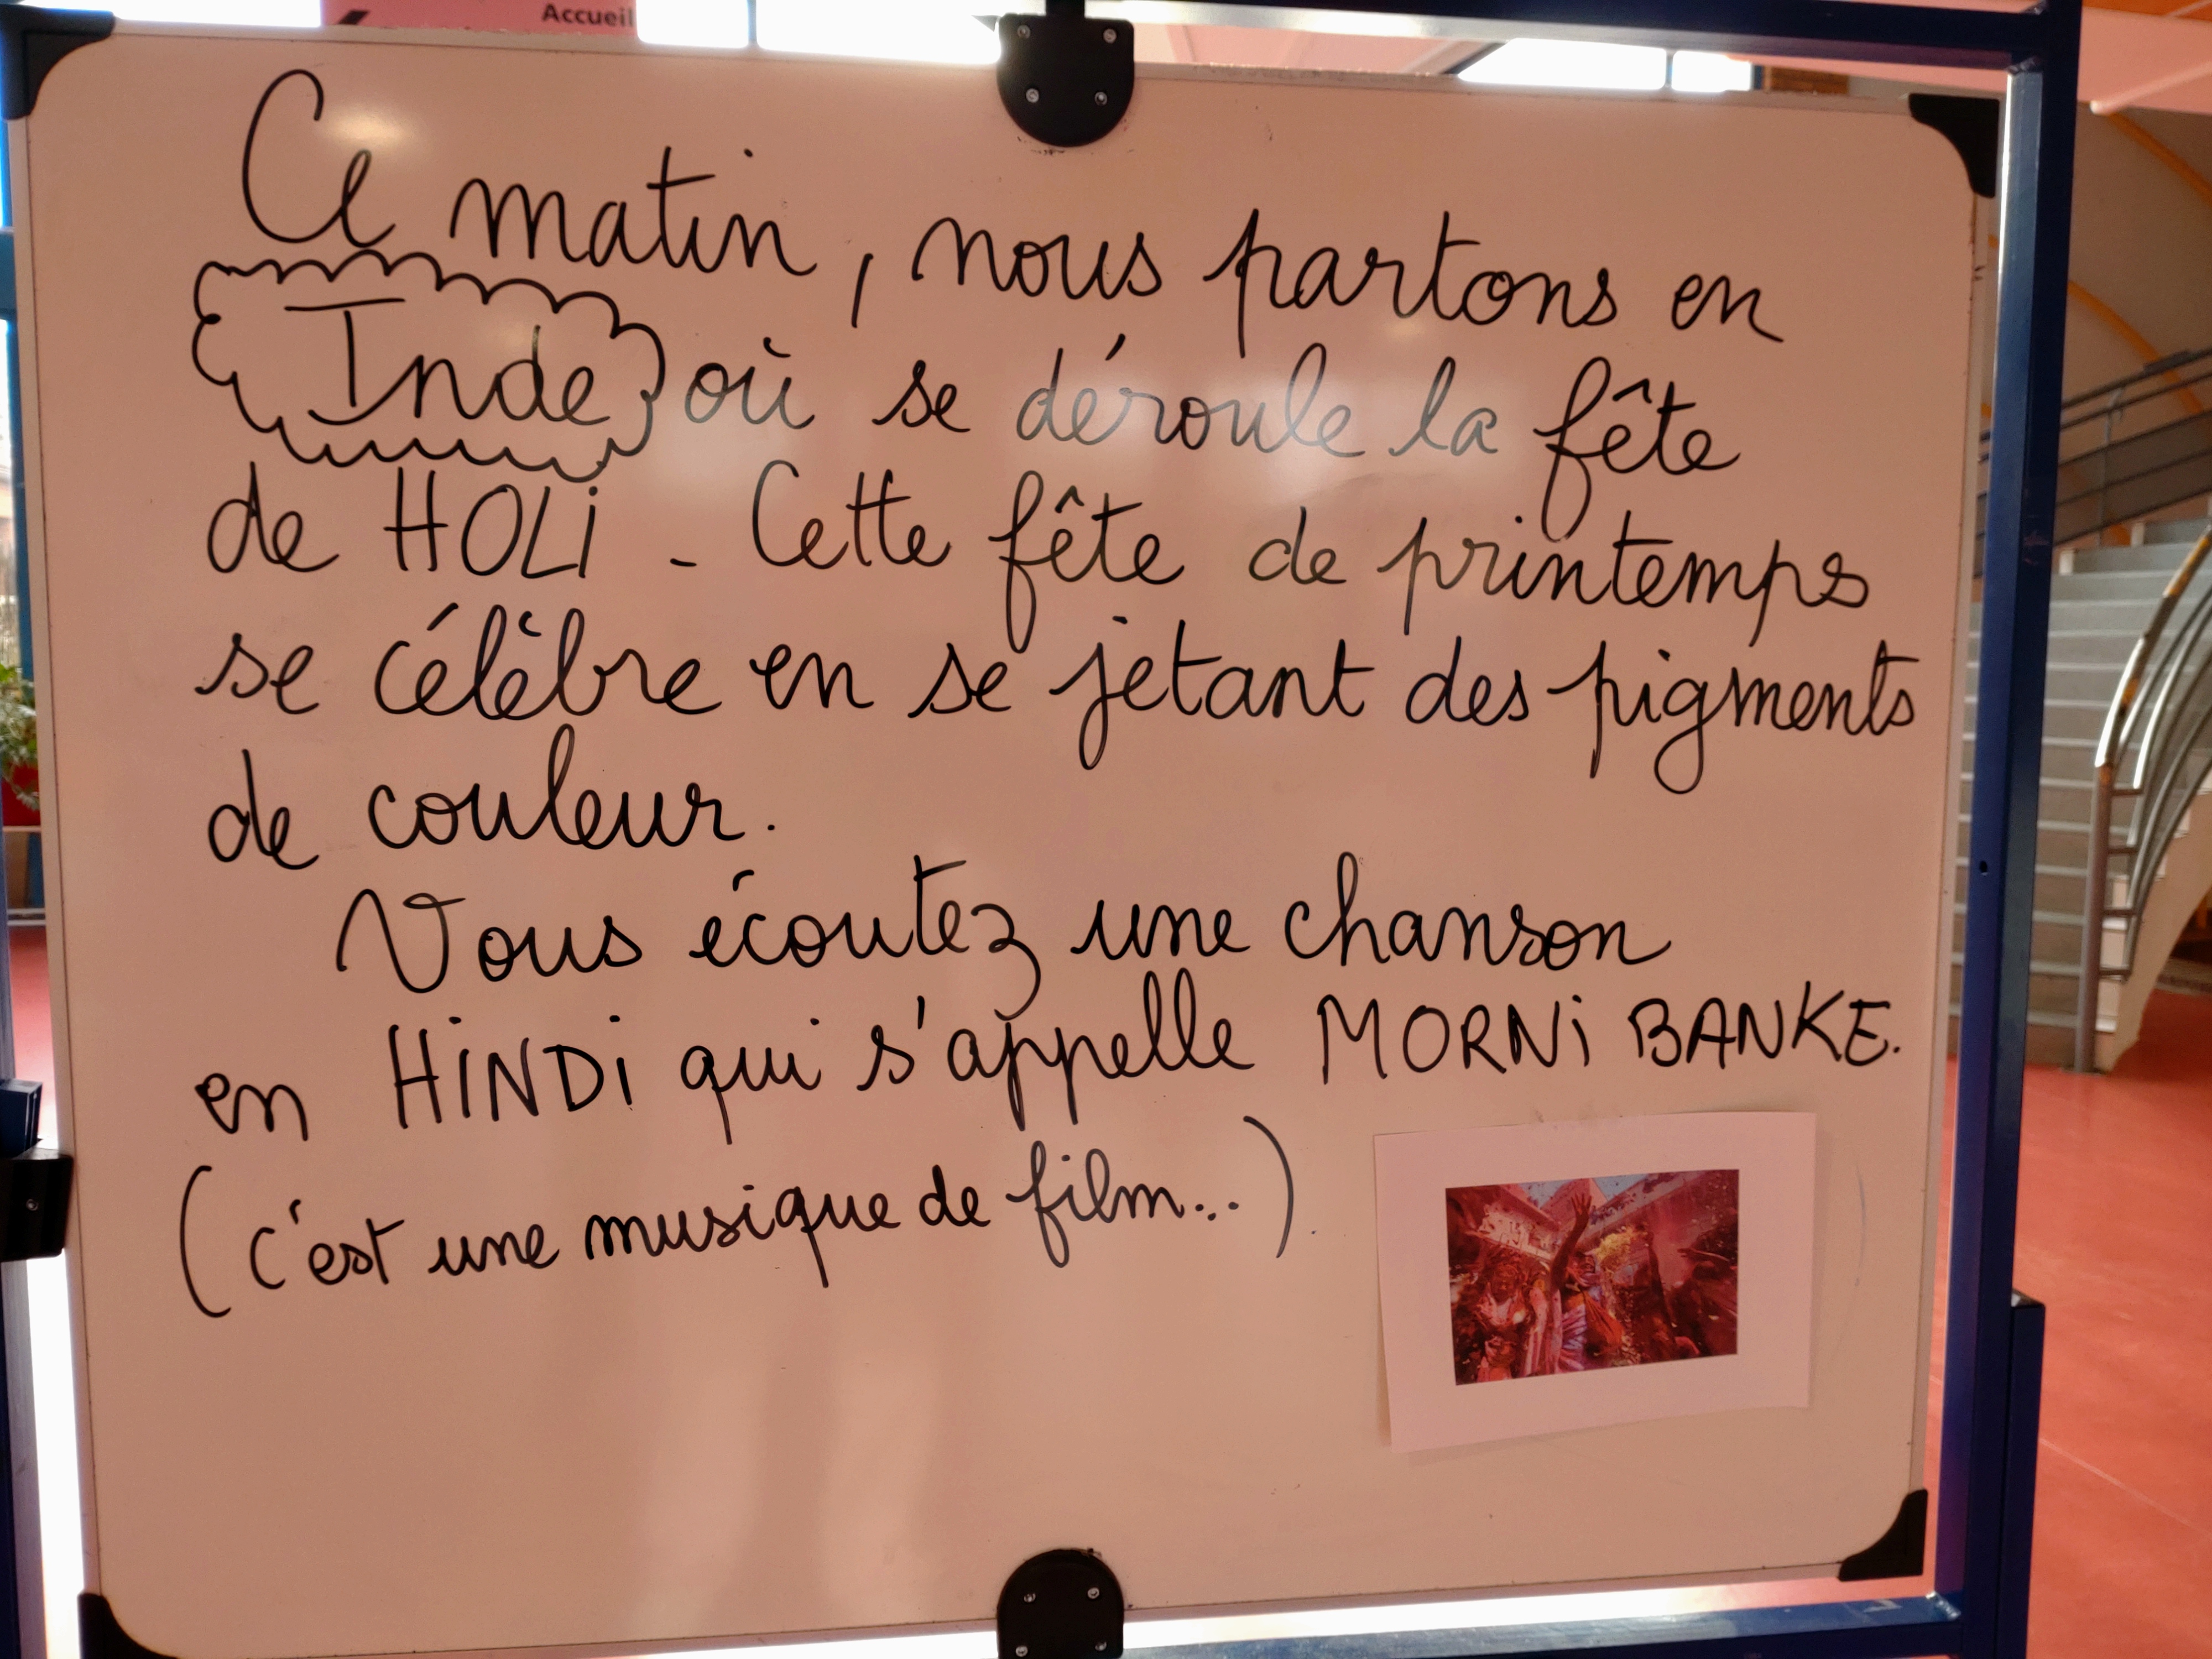 Accueil
Ce matin, nous partons en
Inde où se déroule la fête
de HOLi - Cette fête de printemps
se célèbre en se jetant des pigments
de couleur.
Vous écoutez une chanson
en HiNDi qui s'appelle MORNi BANKE.
(c'est une musique de film...).